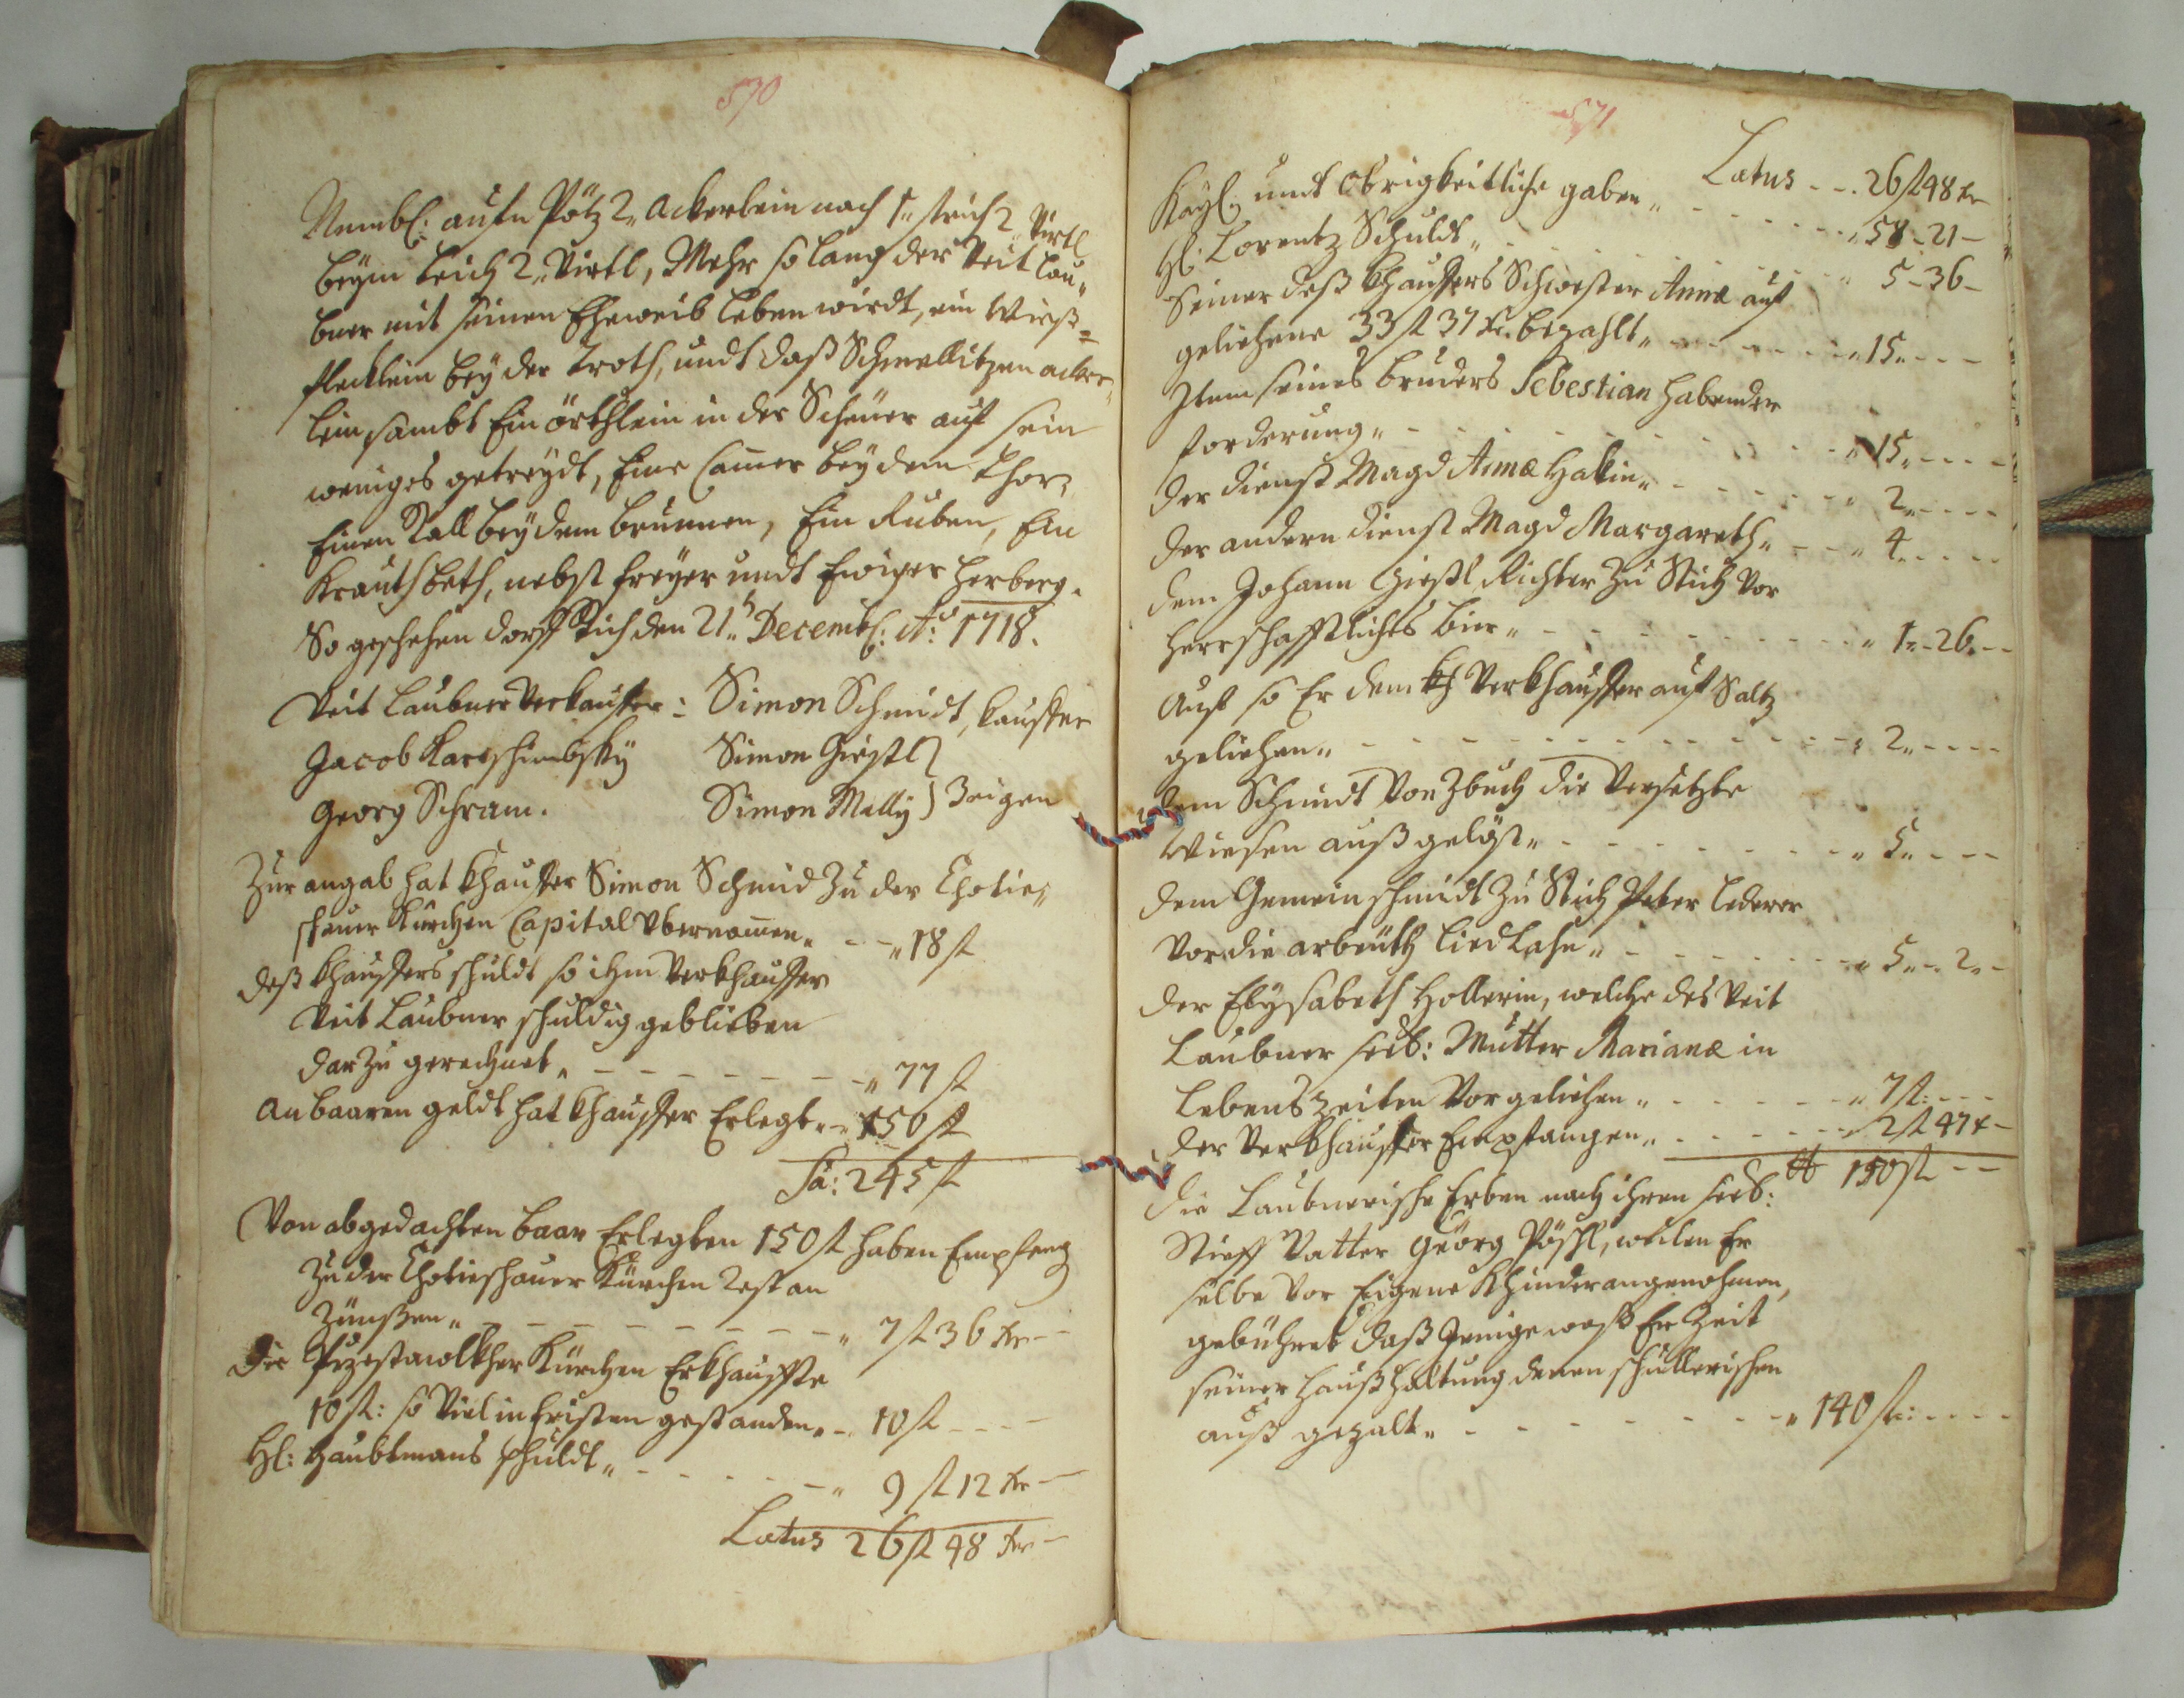 570
Nembl: aufn Pötz 2 Ackerlein nach 1 strich 2 Virtl
beym teich 2 Virtl, Mehr so lang der Veit Lau-
bner mit seinen Eheweib leben wirdt, ein Wieß-
flecklein bey der Troth, undt daß Schmallitzen acker-
lein sambt Ein örthlein in der Scheüer auf sein
weniges getreydt, Eine Camer bey dem Thor,
Einen Stall bey dem brunnen, Ein Ruben, Ein
Krauthbeth, nebst freyer undt Ewiger Herberg.
So geschehen dorff Stich den 21 t Decembl: Ao: 1718.
Veit Laubner Verkauffer: Simon Schmidt, kauffer
Jacob Simon Giestl
Georg Schram. Simon Mally } Zeigen
Zur angab hat Khauffer Simon Schmid Zu der Chotie-
schauer Kürchen Capital Ubernomen - - 18 fl
deß Khauffers schuldt so ihm Verkhauffer
Veit Laubner schuldig geblieben
dar Zu gerechnet - - - 77 fl
An baaren geldt hat Khauffer Erlegt - 150 fl
Sa: 245 fl
Von abgedachten baar Erlegten 150 fl haben Empfeng
Zu der Chotieschauer Kürchen Rest an
Zünßen - - - 7 fl 36 kr
Die Kürchen Erkhauffte
10 fl: so Viel in fristen gestanden - 10 fl
Hl: Haubtmans schuldt - - - 9 fl 12 kr
Latus 26 fl 48 kr
571
Latus - - 26 fl 48 kr
Kayl: undt Obrigkeitliche gaben - - - 58 - 21 -
Hl: Lorentz Schuldt - - - 5 - 36 -
Seiner deß Khauffers Schwester Annæ auf
geliehene 33 fl 37 kr. bezahlt - - - 15 - - -
Item seines bruders Sebestian habender
forderung - - - 15 - - -
der dienst Magd Annæ Hallin - - - 2 - - -
der andern dienst Magd Margareth - - 4 - - -
dem Johann Giestl Richter Zu Stich Vor
herrschafftliches bier - - - 1 - 26 - -
Auf so Er dem Verkhauffer auf Saltz
geliehen - - - 2 - - -
dem Schmidt Von Zbuch die Versetzte
Wiesen auß gelöst - - - 5 - - -
dem Gemein schmidt Zu Stich Peter Lederer
Vor die arbeüth Liedlohn - - - 5 - 2 -
der Elysabeth Hollerin, welche des Veit
Laubner seel: Mutter Marianæ in
Lebenszeiten Vorgeliehen - - - 7 fl: - - -
der Verkhauffer Empfangen - - - 2 fl 47 x -
150 fl - -
die Laubnerische Erben nach ihren seel:
Stieff Vatter Geörg Pöschl, weilen Er
selbe Vor Eigene Khinder angenohmen,
gebühret daß Jenige waß Er Zeit
seiner Haußhaltung denen schullerischen
auß gezalt - - - 140 fl: - - -